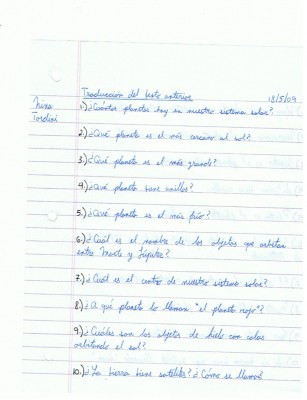 Traducción del texto anterior
18/5/09
Nina
Tordini
1) ¿Cuántos planetas hay en nuestro sistema solar?
2.) ¿Qué planeta es el más cercano al sol?
3.) ¿Qué planeta es el más grande?
4.) ¿Qué planeta tiene anillos?
5.) ¿Qué planeta es el más frío?
6.) ¿Cuál es el nombre de los objetos que orbitan
entre Marte y Júpiter?
7.) ¿Cuál es el centro de nuestro sistema solar?
8.) ¿A qué planeta lo llaman "el planeta rojo"?
9.) ¿Cuáles son los objetos de hielo con colas
orbitando el sol?
10.) ¿La tierra tiene satélites? ¿Cómo se llama?